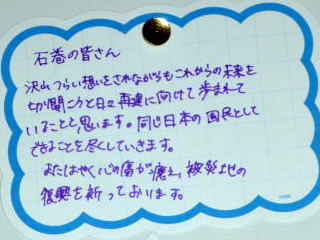 石巻の皆さん
沢山つらい想いをされながらもこれからの未来を
切り開こうと日々再建に向けて歩まれて
いることと思います。同じ日本の国民として
できることを尽くしていきます。
またはやく心の傷が癒え、被災地の
復興を祈っております。